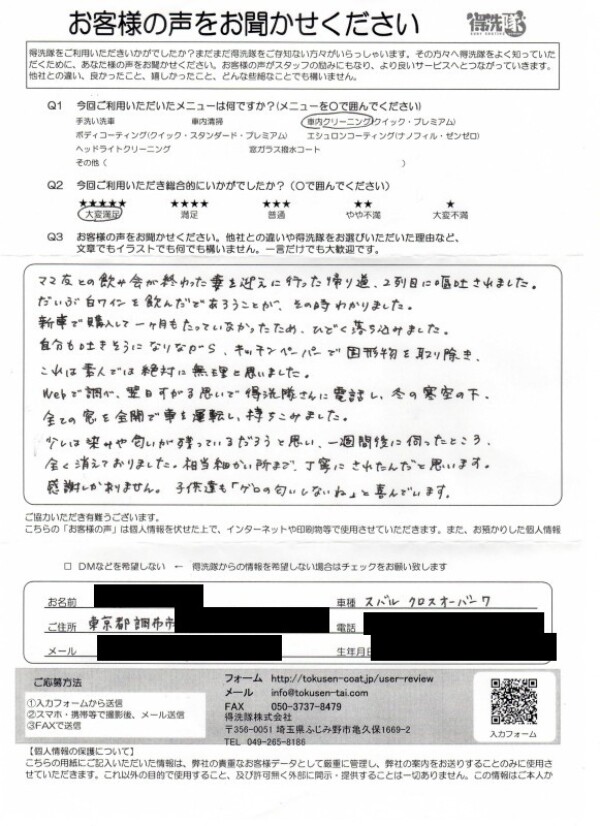 お客様の声をお聞かせください
得洗隊
得洗隊をご利用いただきいかがでしたか?まだまだ得洗隊をご存知ない方々がいらっしゃいます。その方々へ得洗隊をよく知っていた
だくために、あなた様の声をお聞かせください。お客様の声がスタッフの励みにもなり、より良いサービスへとつながっていきます。
他社との違い、良かったこと、嬉しかったこと、どんな些細なことでも構いません。
Q1 今回ご利用いただいたメニューは何ですか?(メニューを〇で囲んでください)
手洗い洗車 車内清掃 車内クリーニング(クイック・プレミアム)
ボディコーティング(クイック・スタンダード・プレミアム) エシュロンコーティング(ナノフィル・ゼンゼロ)
ヘッドライトクリーニング 窓ガラス撥水コート
その他( )
Q2 今回ご利用いただき総合的にいかがでしたか?(〇で囲んでください)
★★★★★ ★★★★ ★★★ ★★ ★
大変満足 満足 普通 やや不満 大変不満
Q3 お客様の声をお聞かせください。他社との違いや得洗隊をお選びいただいた理由など、
文章でもイラストでも何でも構いません。一言だけでも大歓迎です。
ママ友との飲み会が終わった妻を迎えに行った帰り道、2列目に嘔吐されました。
だいぶ白ワインを飲んだであろうことが、その時わかりました。
新車で購入して一ヶ月もたっていなかったため、ひどく落ち込みました。
自分も吐きそうになりながら、キッチンペーパーで固形物を取り除き、
これは素人では絶対に無理と思いました。
Webで調べ、翌日すがる思いで得洗隊さんに電話し、冬の寒空の下、
全ての窓を全開で車を運転し、持ちこみました。
少しは染みや匂いが残っているだろうと思い、一週間後に伺ったところ、
全く消えておりました。相当細かい所まで、丁寧にされたんだと思います。
感謝しかありません。子供達も「ゲロの匂いしないね」と喜んでいます。
ご協力いただき有難うございます。
こちらの「お客様の声」は個人情報を伏せた上で、インターネットや印刷物等で使用させていただきます。また、お預かりした個人情報
□ DMなどを希望しない ← 得洗隊からの情報を希望しない場合はチェックをお願い致します
お名前 車種 スバル クロスオーバー7
ご住所 東京都調布市 電話
メール 生年月日
ご応募方法
①入力フォームから送信
②スマホ・携帯等で撮影後、メール送信
③FAXで送信
フォーム http://tokusen-coat.jp/user-review
メール info@tokusen-tai.com
FAX 050-3737-8479
得洗隊株式会社
〒356-0051 埼玉県ふじみ野市亀久保1669-2
TEL 049-265-8186
入力フォーム
【個人情報の保護について】
こちらの用紙にご記入いただいた情報は、弊社の貴重なお客様データとして厳重に管理し、弊社の案内をお送りすることのみに使用さ
せていただきます。これ以外の目的で使用すること、及び許可無く外部に開示・提供することは一切ありません。この情報はご本人か